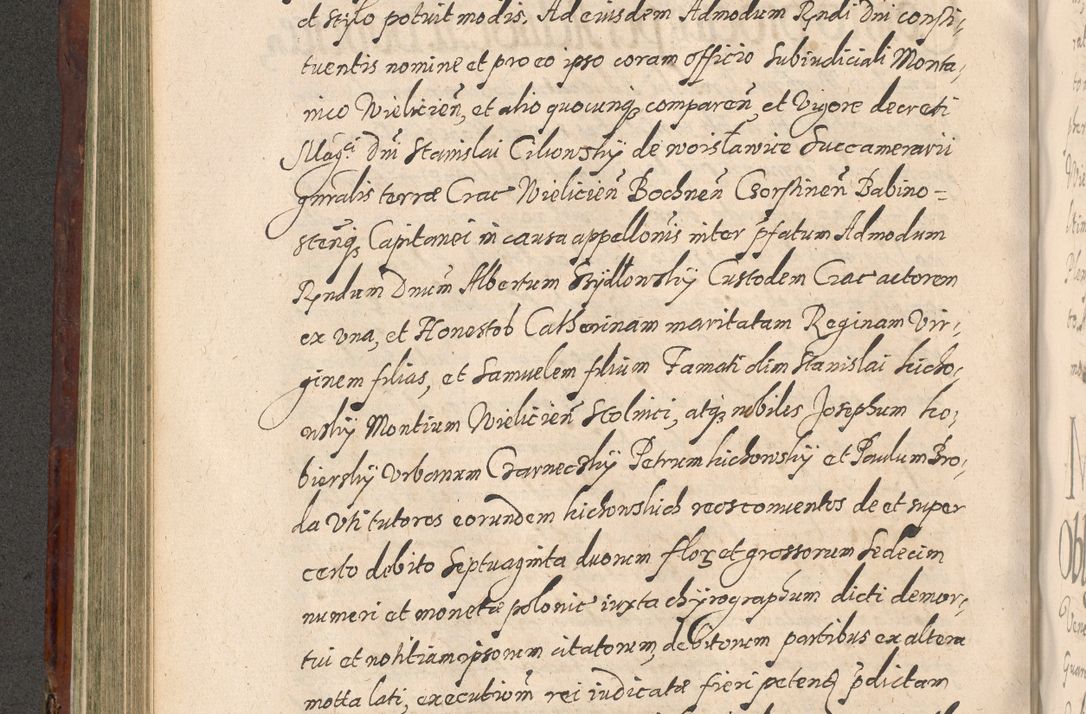 et stylo potuit modis. Ad eiusdem Admodum Rndi Dni consti-
tuentis nomine et pro eo ipso coram officio Subiudiciali Monta-
nico Wielicien, et alio quocunq; comparen, et Vigore decreti
Magci Dni Stanislai Cikowsky de woislawice Succamerarii
gnralis terræ Crac Wielicien Bochnen Czorstinen Babino=
stenq; Capitanei in causa appellonis inter pfatum Admodum
Rndum Dnum Albertum Szydlowsky Custodem Crac actorem
ex una, et Honestos Catherinam maritatam Reginam Vir-
ginem filias, et Samuelem filium Famati olim Stanislai kicho-
wsky Montium Wielicien Stolnici, atq; nobiles Josephum ko-
biersky Urbanum Czarnecsky Petrum kichowsky et Paulum Bro-
da Uti tutores eorundem kichowskich reos conventos de et super
certo debito Septuaginta duorum flor et grossorum Sedecim
numeri et monetæ polonic iuxta chyrographum dicti demor-
tui et notitiam ipsorum citatorum, debitorum partibus ex altera
motta lati, executiom rei iudicatæ fieri petent pdictam